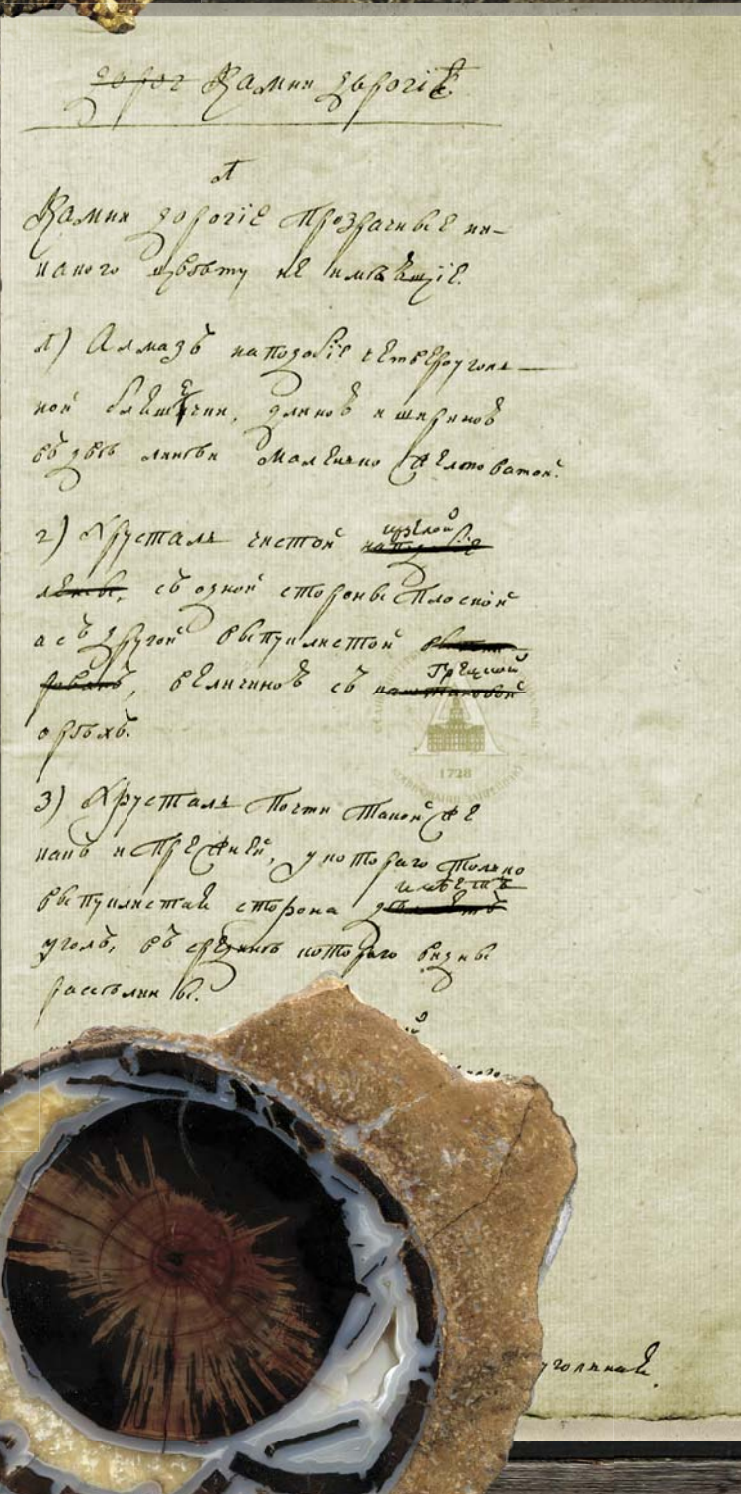 дорог Камни дорогіѣ.
А
Камни дорогіе прозрачные ни-
какого цвѣту не имѣющіе.
1) Алмазъ наподобіе четвероуголь-
ной бляшечки, длиною и шириною
въ двѣ линѣи маленько желтоватой.
2) Хрусталь чистой цѣлой наподобіе
съ одной стороны плоской
а съ другой выпуклистой
величиною съ Грецкой
орѣхъ.
3) Хрусталь почти такой же
какъ и прежней, у котораго только
выпуклистая сторона имѣетъ
уголъ, въ срединѣ котораго видны
разсѣлины.
1728
угольная